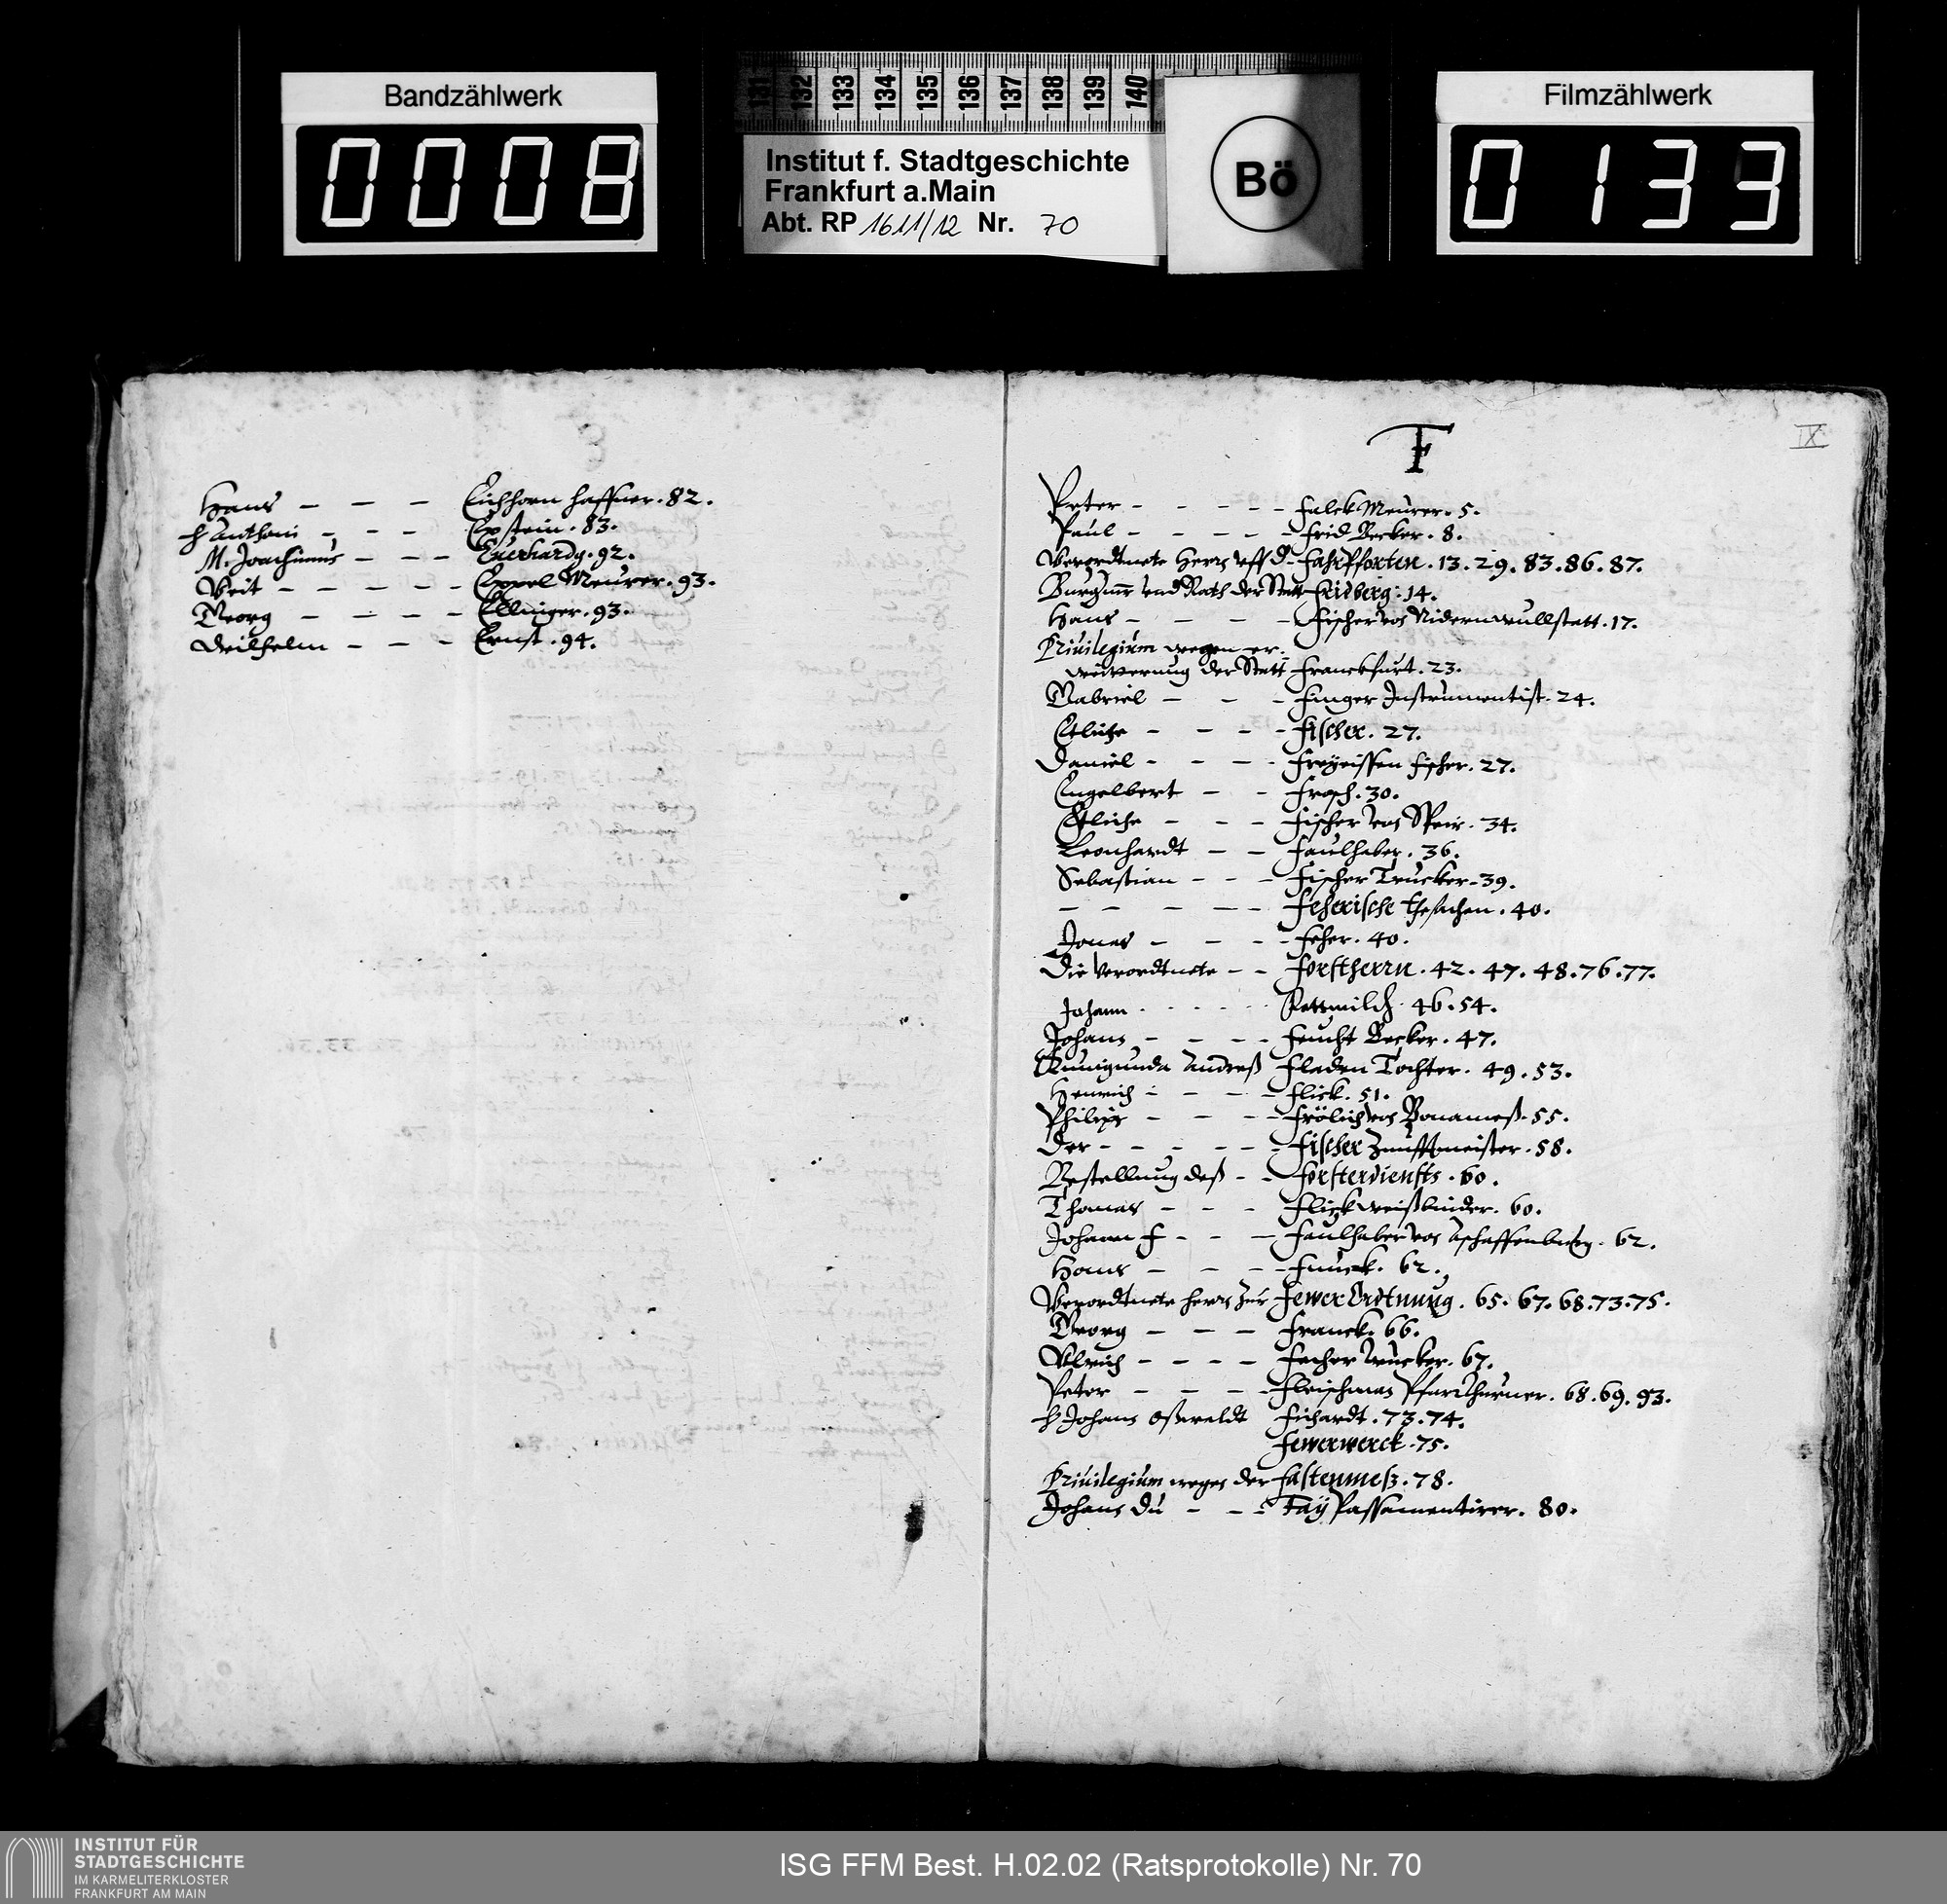 Bandzählwerk
0008
131 132 133 134 135 136 137 138 139 140
Institut f. Stadtgeschichte
Frankfurt a.Main
Abt. RP 1611/12 Nr. 70
Bö
Filmzählwerk
0133
Hans - - - Eichhorn Haffner. 82.
H Anthoni - - - Epstein. 83.
M. Joachimus - - - Euerhardy. 92.
Veit - - - - - Eppel Meurer. 93.
Georg - - - - Ellinger. 93.
Weilhelm - - - Ernst. 94.
F
IX
Peter - - - - - Falck Meurer. 5.
Paul - - - - - Frid Becker. 8.
Verordtnete Hern vff d. Fahrpforten. 13. 29. 83. 86. 87.
Burgmr vnd Rath der Statt Fridberg. 14.
Hans - - - - Fischer von Nidernwullstatt. 17.
Priuilegium wegen er-
weitterung der Statt Franckfurt. 23.
Gabriel - - - Finger Instrumentist. 24.
Etliche - - - - Fischer. 27.
Daniel - - - - Freyeissen Fischer. 27.
Engelbert - - Frosch. 30.
Etliche - - - Fischer von Speir. 34.
Leonhardt - - Faulhaber. 36.
Sebastian - - - Fischer Trucker. 39.
- - - - - Feherische Ehesachen. 40.
Jonas - - - - Feher. 40.
Die Verordtnete - - Forstherrn. 42. 47. 48. 76. 77.
Johann - - - - Fettmilch. 46. 54.
Johann - - - - Feucht Becker. 47.
Kunigunda Andreß Fladen Tochter. 49. 53.
Henrich - - - - Flick. 51.
Philips - - - - Frölich von Bonameß. 55.
Der - - - - - - Fischer Zunfftmeister. 58.
Bestellung deß - - Forsterdiensts. 60.
Thomas - - - Flick weißbinder. 60.
Johann F - - - Faulhaber von Aschaffenburg. 62.
Hans - - - - Funck. 62.
Verordtnete Hern zur Fewer Ordtnung. 65. 67. 68. 73. 75.
Georg - - - Franck. 66.
Ulrich - - - - Fecher Trucker. 67.
Peter - - - - Fleischman Pfarrthurner. 68. 69. 93.
H Johann Oßwaldt Fichardt. 73. 74.
Fewerwerck. 75.
Priuilegium wegen der Fastenmeß. 78.
Johann du - - - Fay Passamentirer. 80.
INSTITUT FÜR
STADTGESCHICHTE
IM KARMELITERKLOSTER
FRANKFURT AM MAIN
ISG FFM Best. H.02.02 (Ratsprotokolle) Nr. 70